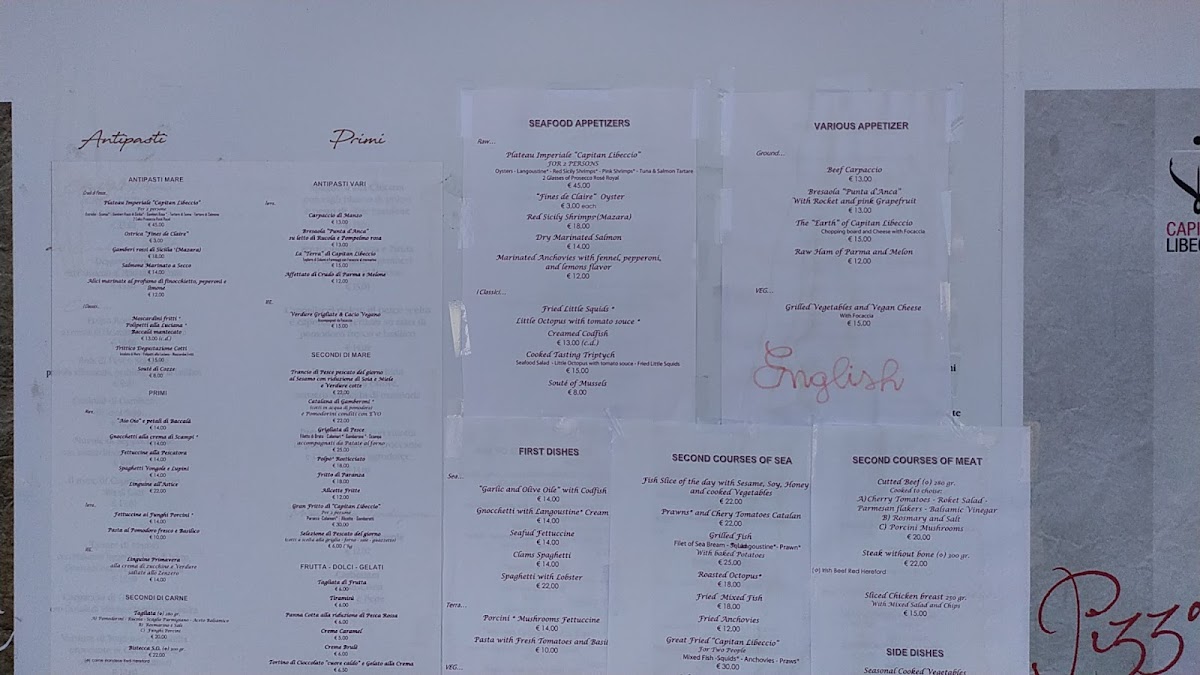 Antipasti
Primi
ANTIPASTI MARE
Plateau Imperiale "Capitan Libeccio"
Per 2 persone
€ 45.00
Ostrica "Fines de Claire"
€ 3.00
Gamberi rossi di Sicilia (Mazara)
€ 18.00
Salmone Marinato a Secco
€ 14.00
Alici marinate al profumo di finocchietto, peperoni e
limone
€ 12.00
Moscardini fritti *
Polipetti alla Luciana *
Baccalà mantecato
€ 13.00 (c.d.)
Trittico Degustazione Cotti
€ 15.00
Souté di Cozze
€ 8.00
PRIMI
"Aio Oio" e petali di Baccalà
€ 14.00
Gnocchetti alla crema di Scampi *
€ 14.00
Fettuccine alla Pescatora
€ 14.00
Spaghetti Vongole e Lupini
€ 14.00
Linguine all'Astice
€ 22.00
Fettuccine ai Funghi Porcini *
€ 14.00
Pasta al Pomodoro fresco e Basilico
€ 10.00
Linguine Primavera
alla crema di zucchine e Verdure
saltate allo Zenzero
€ 14.00
SECONDI DI CARNE
Tagliata (o) 280 gr.
B) Rosmarino e Sale
C) Funghi Porcini
€ 20.00
Bistecca S.O. (o) 300 gr.
€ 22.00
ANTIPASTI VARI
Terra..
Carpaccio di Manzo
€ 13.00
Bresaola "Punta d'Anca"
su letto di Rucola e Pompelmo rosa
€ 13.00
La "Terra" di Capitan Libeccio
€ 15.00
Affettato di Crudo di Parma e Melone
€ 12.00
Verdure Grigliate & Cacio Vegano
€ 15.00
SECONDI DI MARE
Trancio di Pesce pescato del giorno
al Sesamo con riduzione di Soia e Miele
e Verdure cotte
€ 22.00
Catalana di Gamberoni *
e Pomodorini conditi con EVO
€ 22.00
Grigliata di Pesce
accompagnati da Patate al forno
€ 25.00
Polpo* Rosticciato
€ 18.00
Fritto di Paranza
€ 18.00
Alicette Fritte
€ 12.00
Gran Fritto di "Capitan Libeccio"
Per 2 persone
€ 30.00
Selezione di Pescato del giorno
€ 6.00 / hg
FRUTTA - DOLCI - GELATI
Tagliata di Frutta
€ 6.00
Tiramisù
€ 6.00
Panna Cotta alla riduzione di Pesca Rossa
€ 6.00
Creme Caramel
€ 5.00
Creme Brulè
€ 6.00
Tortino di Cioccolato "cuore caldo" e Gelato alla Crema
€ 6.50
SEAFOOD APPETIZERS
Raw...
Plateau Imperiale "Capitan Libeccio"
FOR 2 PERSONS
Oysters - Langoustine* - Red Sicily Shrimps* - Pink Shrimps* - Tuna & Salmon Tartare
2 Glasses of Prosecco Rosé Royal
€ 45.00
"Fines de Claire" Oyster
€ 3.00 each
Red Sicily Shrimps(Mazara)
€ 18.00
Dry Marinated Salmon
€ 14.00
Marinated Anchovies with fennel, pepperoni,
and lemons flavor
€ 12.00
I Classici...
Fried Little Squids *
Little Octopus with tomato souce *
Creamed Codfish
€ 13.00 (c.d.)
Cooked Tasting Triptych
Seafood Salad - Little Octopus with tomato souce - Fried Little Squids
€ 15.00
Souté of Mussels
€ 8.00
VARIOUS APPETIZER
Ground...
Beef Carpaccio
€ 13.00
Bresaola "Punta d'Anca"
With Rocket and pink Grapefruit
€ 13.00
The "Earth" of Capitan Libeccio
Chopping board and Cheese with Focaccia
€ 15.00
Raw Ham of Parma and Melon
€ 12.00
VEG...
Grilled Vegetables and Vegan Cheese
With Focaccia
€ 15.00
English
FIRST DISHES
Sea...
"Garlic and Olive Oile" with Codfish
€ 14.00
Gnocchetti with Langoustine* Cream
€ 14.00
Seafud Fettuccine
€ 14.00
Clams Spaghetti
€ 14.00
Spaghetti with Lobster
€ 22.00
Terra...
Porcini * Mushrooms Fettuccine
€ 14.00
Pasta with Fresh Tomatoes and Basil
€ 10.00
VEG...
SECOND COURSES OF SEA
Fish Slice of the day with Sesame, Soy, Honey
and cooked Vegetables
€ 22.00
Prawns* and Chery Tomatoes Catalan
€ 22.00
Grilled Fish
Filet of Sea Bream - Squid - Langoustine* - Prawn*
With baked Potatoes
€ 25.00
Roasted Octopus*
€ 18.00
Fried Mixed Fish
€ 18.00
Fried Anchovies
€ 12.00
Great Fried "Capitan Libeccio"
For Two People
Mixed Fish -Squids* - Anchovies - Praws*
€ 30.00
SECOND COURSES OF MEAT
Cutted Beef (o) 280 gr.
Cooked to choise:
A)Cherry Tomatoes - Roket Salad -
Parmesan flakers - Balsamic Vinegar
B) Rosmary and Salt
C) Porcini Mushrooms
€ 20,00
Steak without bone (o) 300 gr.
€ 22.00
(o) Irish Beef Red Hereford
Sliced Chicken breast 250 gr.
With Mixed Salad and Chips
€ 15.00
SIDE DISHES
Seasonal Cooked Vegetables
CAPI
LIBEC
Pizz